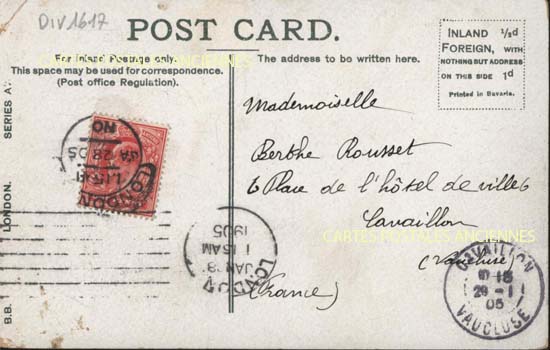 DIV1617
POST CARD.
For Inland Postage only.
This space may be used for correspondence.
(Post office Regulation).
The address to be written here.
INLAND ½d
FOREIGN, WITH
NOTHING BUT ADDRESS
ON THIS SIDE 1d
Printed in Bavaria.
B.B. LONDON. SERIES A.
LONDON
1.15AM
JA 28 05
NO
LONDON
JAN 28
1 15AM
1905
Mademoiselle
Berthe Rousset
6 Place de l'hôtel de ville 6
Cavaillon
(Vaucluse)
(France)
CAVAILLON
29 - 1
05
VAUCLUSE
CARTES POSTALES ANCIENNES
CARTES POSTALES ANCIENNES